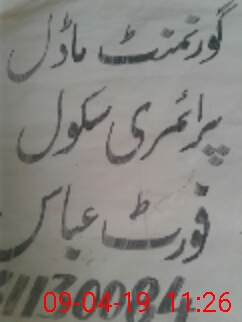 گورنمنٹ ماڈل
پرائمری سکول
فورٹ عباس
31130004
09-04-19 11:26